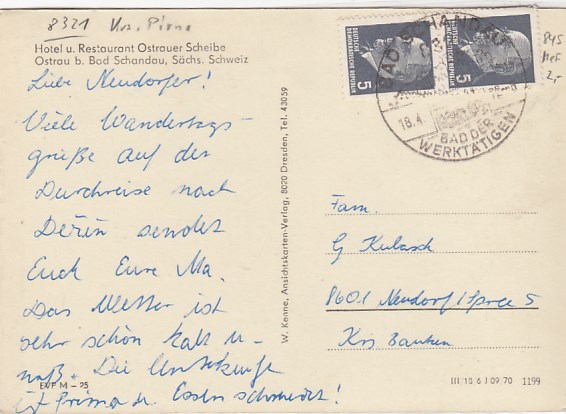 8321 Krs. Pirna
Hotel u. Restaurant Ostrauer Scheibe
Ostrau b. Bad Schandau, Sächs. Schweiz
Liebe Neudorfer!
Viele Wandertags-
grüße auf der
Durchreise nach
sendet
Euch Eure Ma.
Das Wetter ist
sehr schön kalt u-
naß. Die Unterkunft
ist prima u. Essen schmeckt!
EVP M – 25
W. Kenne, Ansichtskarten-Verlag, 8020 Dresden, Tel. 43059
DEUTSCHE DEMOKRATISCHE REPUBLIK
5
5
BAD SCHANDAU
18.4.
BAD DER
WERKTÄTIGEN
845
2,-
Fam.
G Kubasch
8601 Neudorf/Spree 5
Krs Bautzen
III 18 6 J 09 70 1199